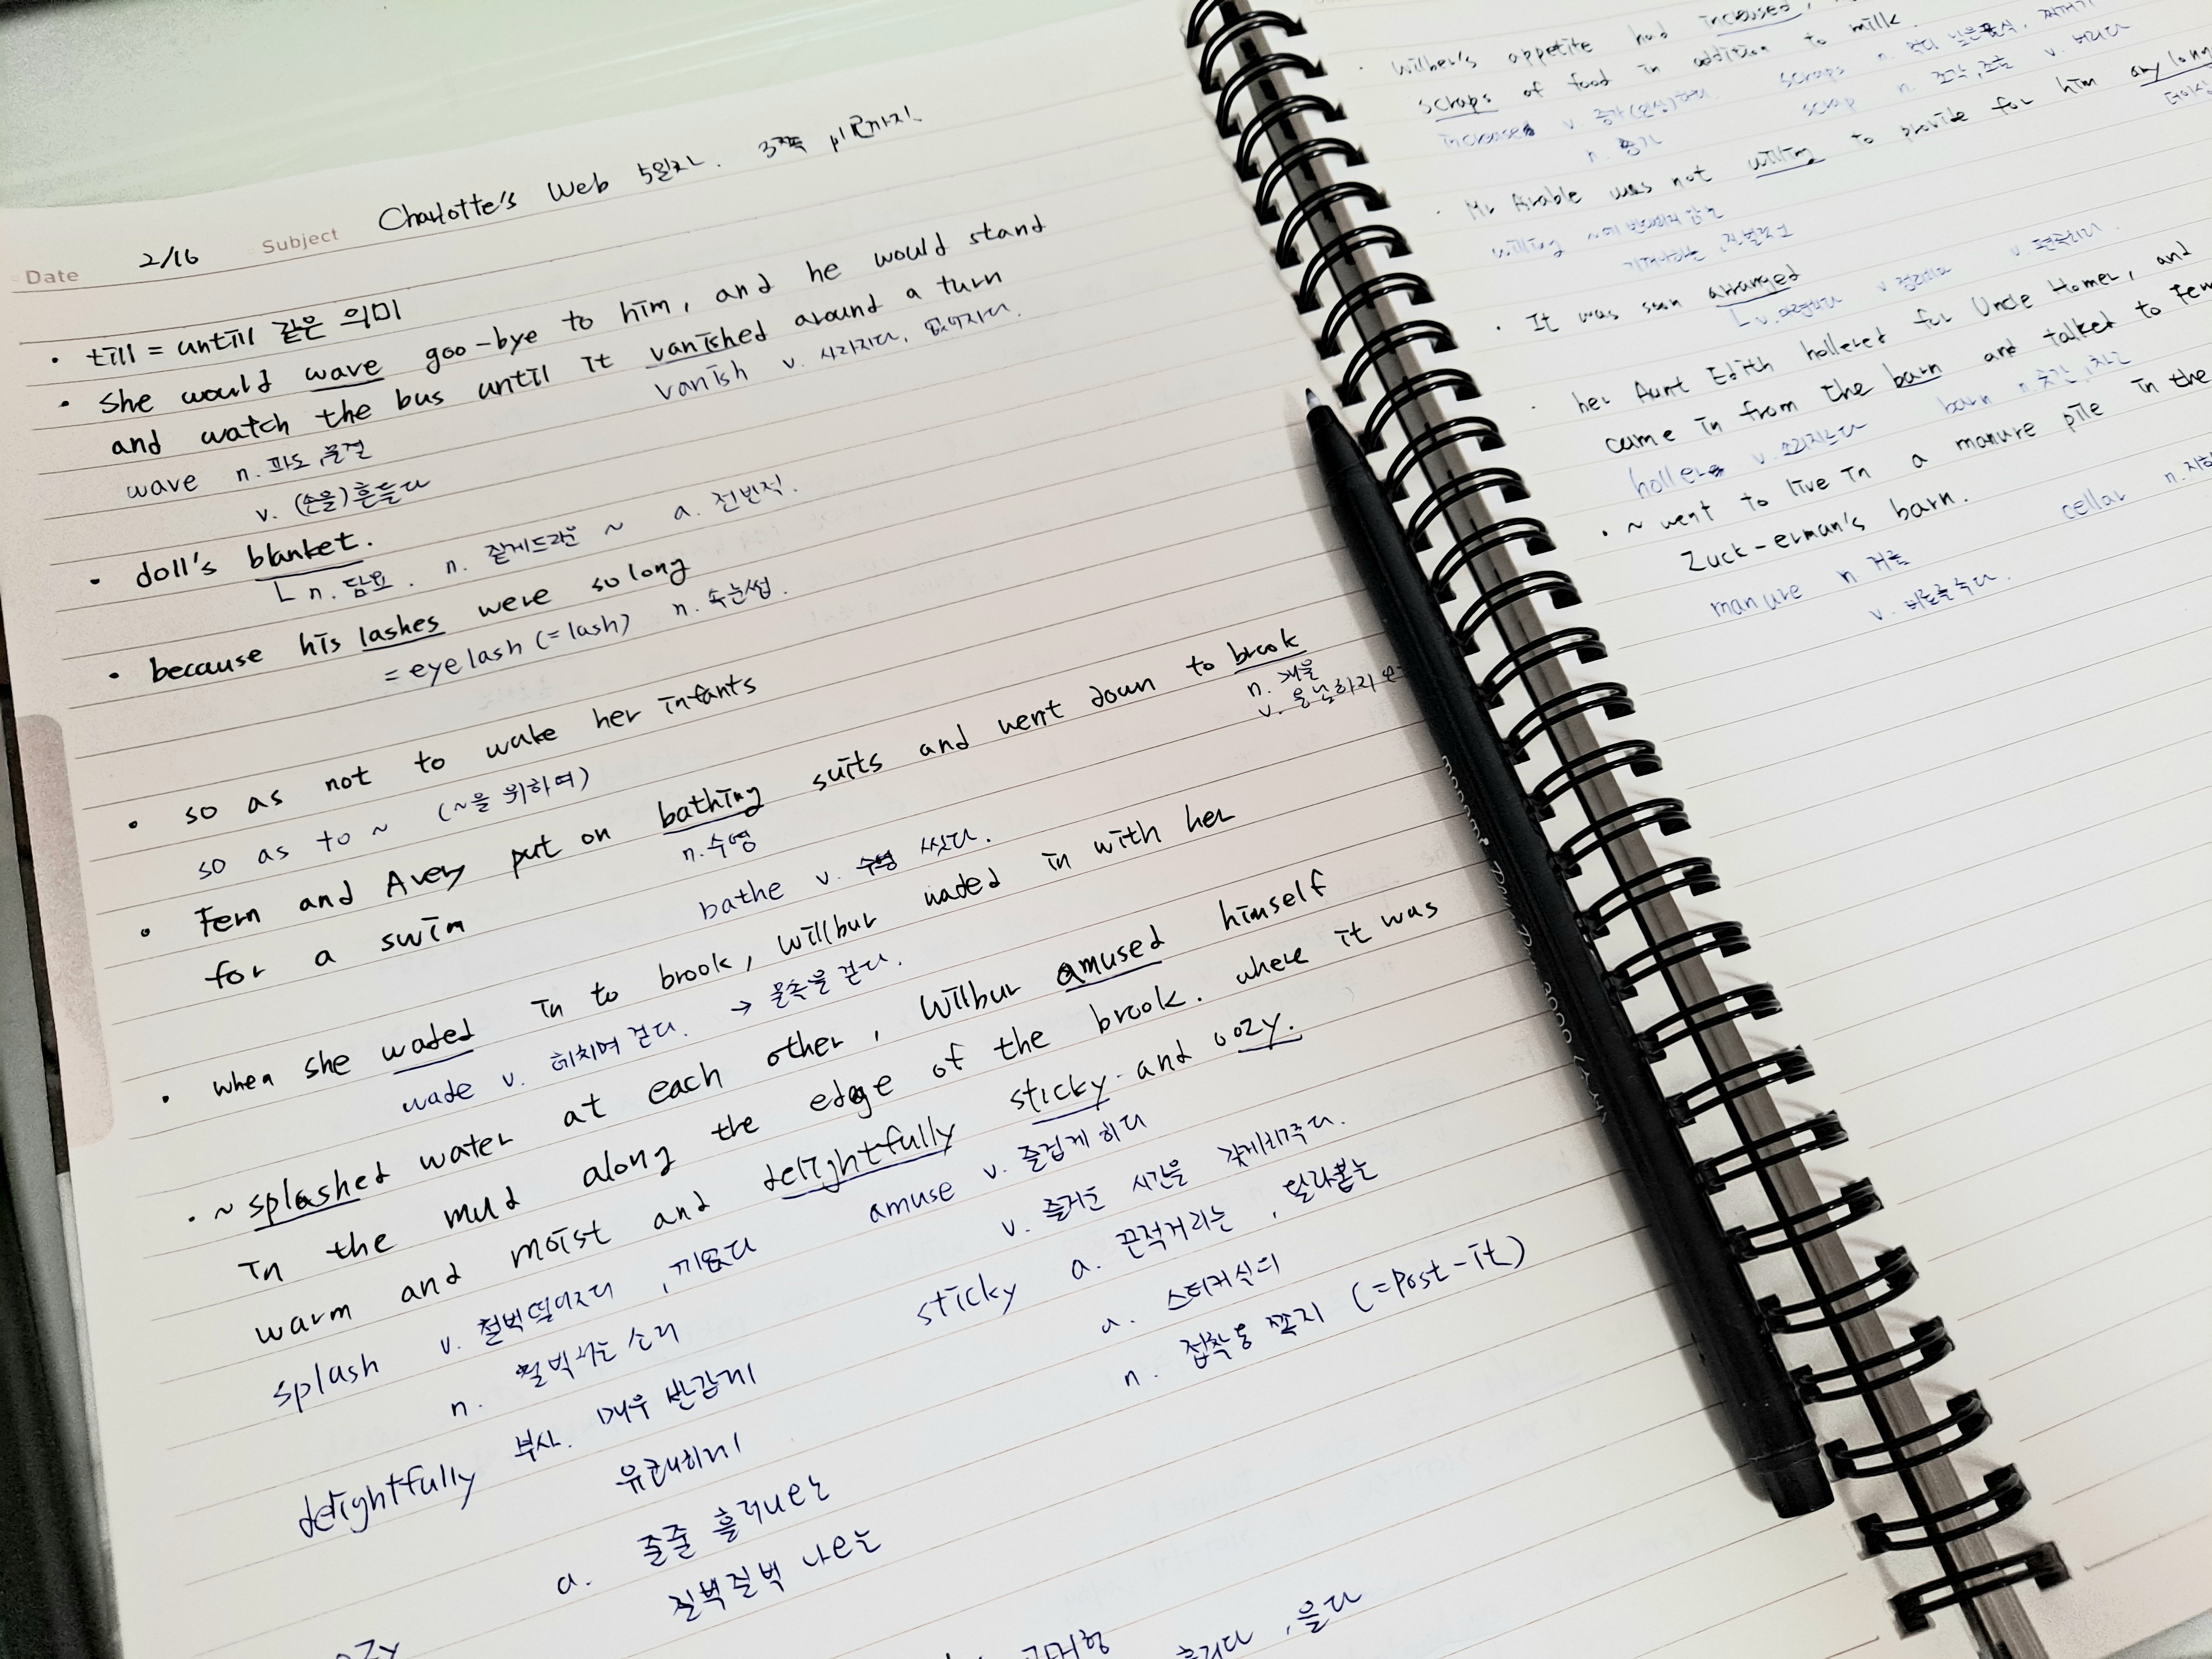 Date 2/16 Subject Charlotte's Web 5일차. 3쪽
• till = untill 같은 의미
• She would wave goo-bye to him, and he would stand
and watch the bus until it vanished around a turn
vanish v. 사라지다, 없어지다.
wave n. 파도, 물결
v. (손을) 흔들다
• doll's blanket.
└ n. 담요. n. 짙게드리운 ~ a. 전반적.
• because his lashes were so long
= eyelash (= lash) n. 속눈썹.
• so as not to wake her infants
so as to ~ (~을 위하여)
• Fern and Avery put on bathing suits and went down to brook
n. 수영
n. 개울
v.
for a swim
bathe v. 씻다.
• when she waded in to brook, Wilbur waded in with her
wade v. 헤치며 걷다. → 물속을 걷다.
• ~ splashed water at each other, Wilbur amused himself
in the mud along the edge of the brook. where it was
warm and moist and delightfully sticky and oozy.
amuse v. 즐겁게 하다
v. 즐거운 시간을 갖게해주다.
splash v. 철벅떨어지다, 끼얹다
n. 철벅하는 소리
sticky a. 끈적거리는, 달라붙는
a. 스티커식의
n. 접착용 쪽지 (=Post-it)
delightfully 부사. 매우 반갑게
유쾌하게
a. 줄줄 흘러나오는
질벅질벅 나오는
• Wilber's appetite had increased,
scraps of food in addition to milk.
increase v. 증가(인상)하다.
scraps n.
scrap n. 조각, 조금 v. 버리다
n. 증가
• Mr Arable was not willing to provide for him any long
willing ~에 반대하지 않는
기꺼이하는, 자발적
• It was soon arranged
• her Aunt Edith hollered for Uncle Homer, and
came in from the barn and talked to Fern
holler v. 소리지르다
barn n. 헛간
• ~ went to live in a manure pile in the
Zuck-erman's barn.
cellar n.
manure n 거름
v. 비료를 주다.
monami